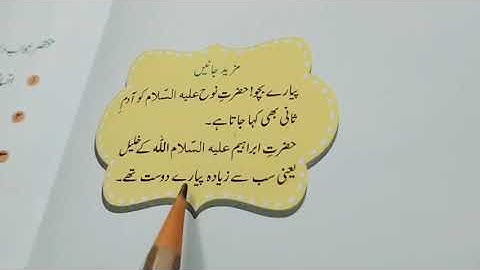 مزید جانیں
پیارے بچو! حضرتِ نوح علیہ السّلام کو آدمِ
ثانی بھی کہا جاتا ہے۔
حضرتِ ابراہیم علیہ السّلام اللہ کے خلیل
یعنی سب سے زیادہ پیارے دوست تھے۔